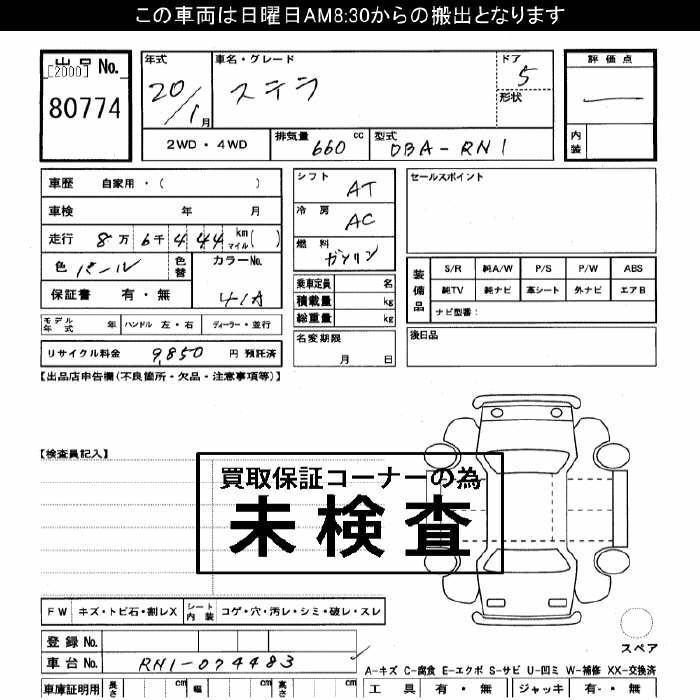 この車両は日曜日AM8:30からの搬出となります
出品 No.
[2000]
80774
年式
20/1月
車名・グレード
ステラ
ドア
5
形状
評価点
内装
2WD・4WD
排気量
660 cc
型式
DBA-RN1
車歴 自家用・( )
車検 年 月
走行 8万 6千 444 km マイル ( )
色 パール
色替
カラーNo.
41A
保証書 有・無
モデル年式 年 ハンドル 左・右 ディーラー・並行
リサイクル料金 9,850 円 預託済
シフト AT
冷房 AC
燃料 ガソリン
乗車定員 名
積載量 kg
総重量 kg
名変期限
月 日
セールスポイント
装備品
S/R 純A/W P/S P/W ABS
純TV 純ナビ 革シート 外ナビ エアB
ナビ型番:
後日品
【出品店申告欄(不良箇所・欠品・注意事項等)】
【検査員記入】
買取保証コーナーの為
未検査
FW キズ・トビ石・割レX シート内装 コゲ・穴・汚レ・シミ・破レ・スレ
登録No.
車台No. RN1-074483
スペア
A-キズ C-腐食 E-エクボ S-サビ U-凹ミ W-補修 XX-交換済
車庫証明用 長さ cm 幅 cm 高さ cm
工具 有・無 ジャッキ 有・無